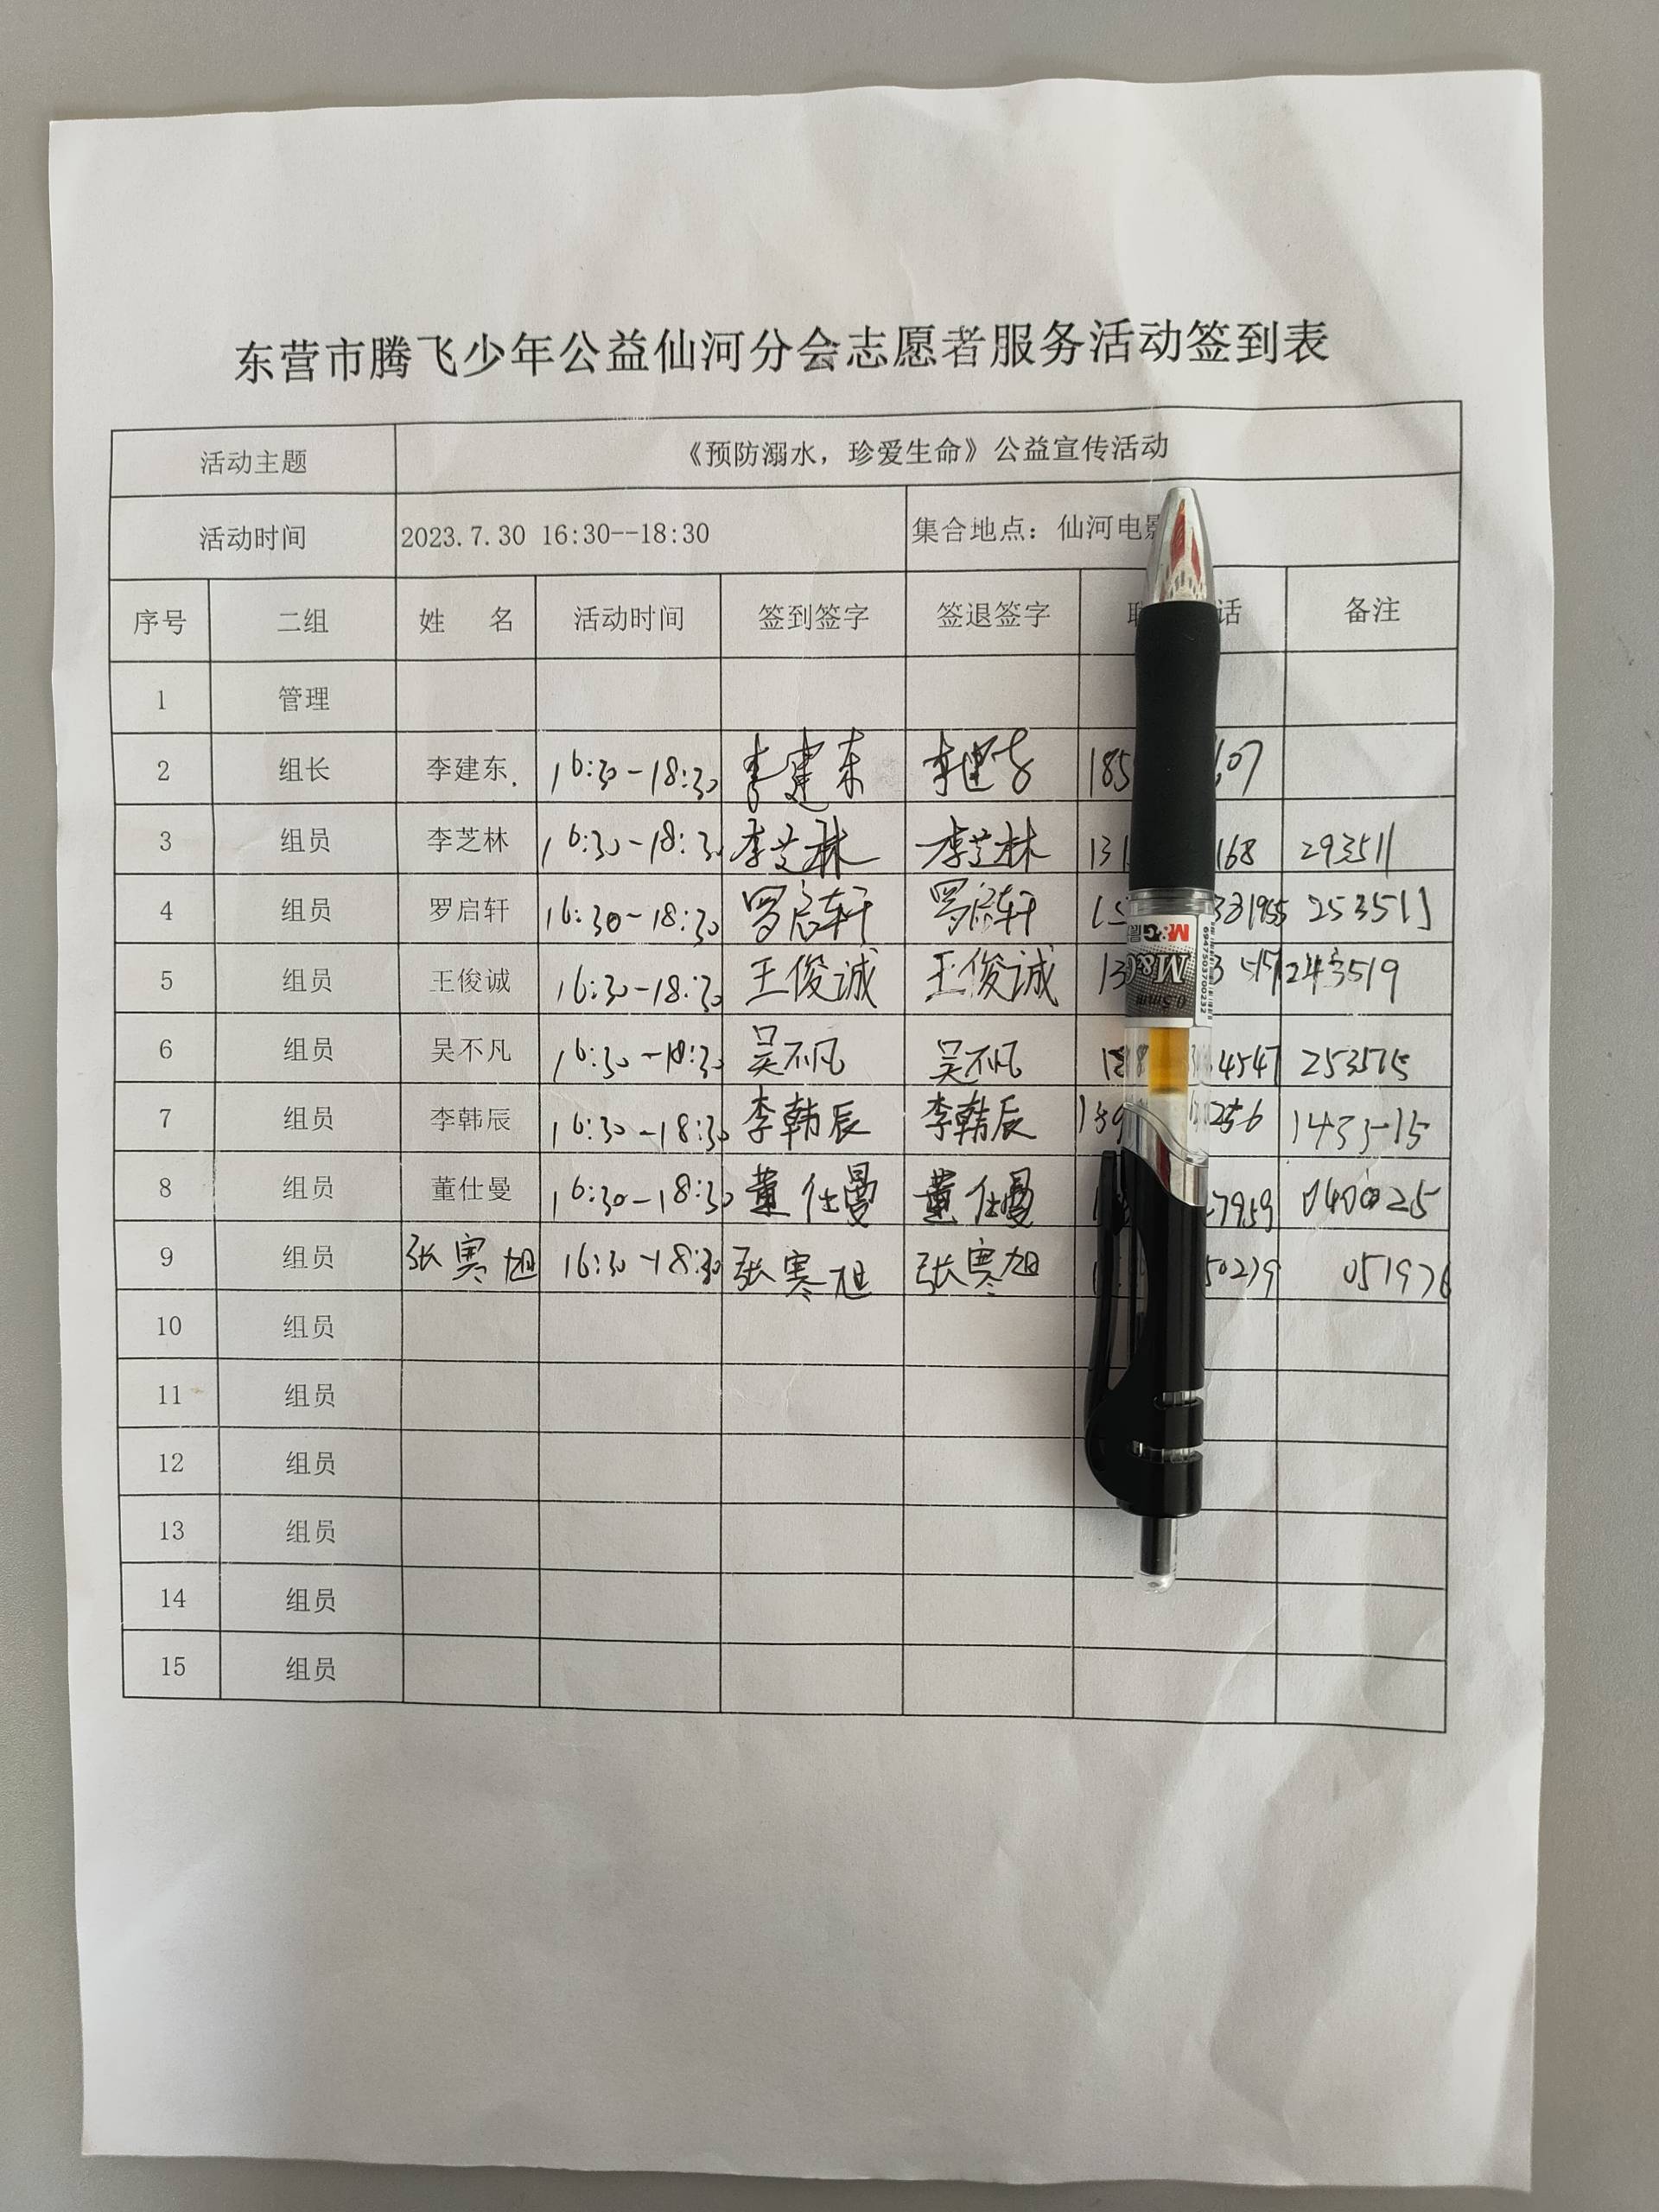 东营市腾飞少年公益仙河分会志愿者服务活动签到表
活动主题 《预防溺水，珍爱生命》公益宣传活动
活动时间 2023.7.30 16:30--18:30 集合地点：仙河电影
序号 二组 姓 名 活动时间 签到签字 签退签字 话 备注
1 管理
2 组长 李建东. 16:30-18:30 李建东 李建东 185 607
3 组员 李芝林 16:30-18:30 李芝林 李芝林 131 168 293511
4 组员 罗启轩 16:30-18:30 罗启轩 罗启轩 15 331955 253511
5 组员 王俊诚 16:30-18:30 王俊诚 王俊诚 130 243519
6 组员 吴不凡 16:30-18:30 吴不凡 吴不凡 4547 253515
7 组员 李韩辰 16:30-18:30 李韩辰 李韩辰 139 256 143515
8 组员 董仕曼 16:30-18:30 董仕曼 董仕曼 7959 040025
9 组员 张寒旭 16:30-18:30 张寒旭 张寒旭 50279 051976
10 组员
11 组员
12 组员
13 组员
14 组员
15 组员
M&G
M&G
0.5mm
6947503700232